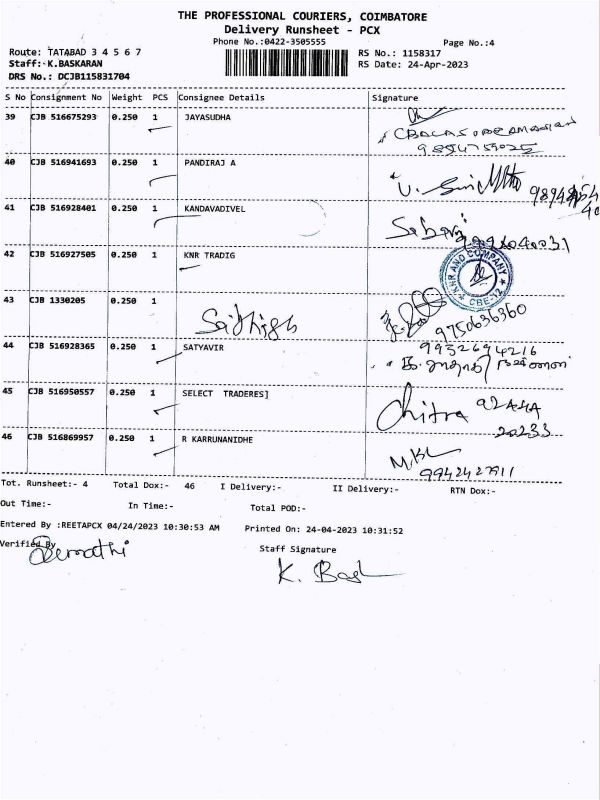 THE PROFESSIONAL COURIERS, COIMBATORE
Delivery Runsheet - PCX
Phone No.:0422-3505555 Page No.:4
Route: TATABAD 3 4 5 6 7 RS No.: 1158317
Staff: K.BASKARAN RS Date: 24-Apr-2023
DRS No.: DCJB115831704
S No Consignment No Weight PCS Consignee Details Signature
39 CJB 516675293 0.250 1 JAYASUDHA
40 CJB 516941693 0.250 1 PANDIRAJ A
41 CJB 516928401 0.250 1 KANDAVADIVEL
42 CJB 516927505 0.250 1 KNR TRADIG
KNR AND COMPANY
CBE-12
43 CJB 1330205 0.250 1
9750636360
44 CJB 516928365 0.250 1 SATYAVIR 9932694216
45 CJB 516950557 0.250 1 SELECT TRADERES] Chitra
20233
46 CJB 516869957 0.250 1 R KARRUNANIDHE
9942427911
Tot. Runsheet:- 4 Total Dox:- 46 I Delivery:- II Delivery:- RTN Dox:-
Out Time:- In Time:- Total POD:-
Entered By :REETAPCX 04/24/2023 10:30:53 AM Printed On: 24-04-2023 10:31:52
Verified By Staff Signature
K. Bas